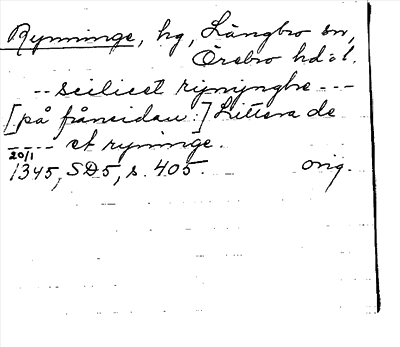 Rynninge, hg, Längbro sn,
Örebro hd: l.
-- scilicet rynynghe ---
[på frånsidan:] Littera de
---- et ryninge.
20/1
1345, SD5, s. 405. orig.